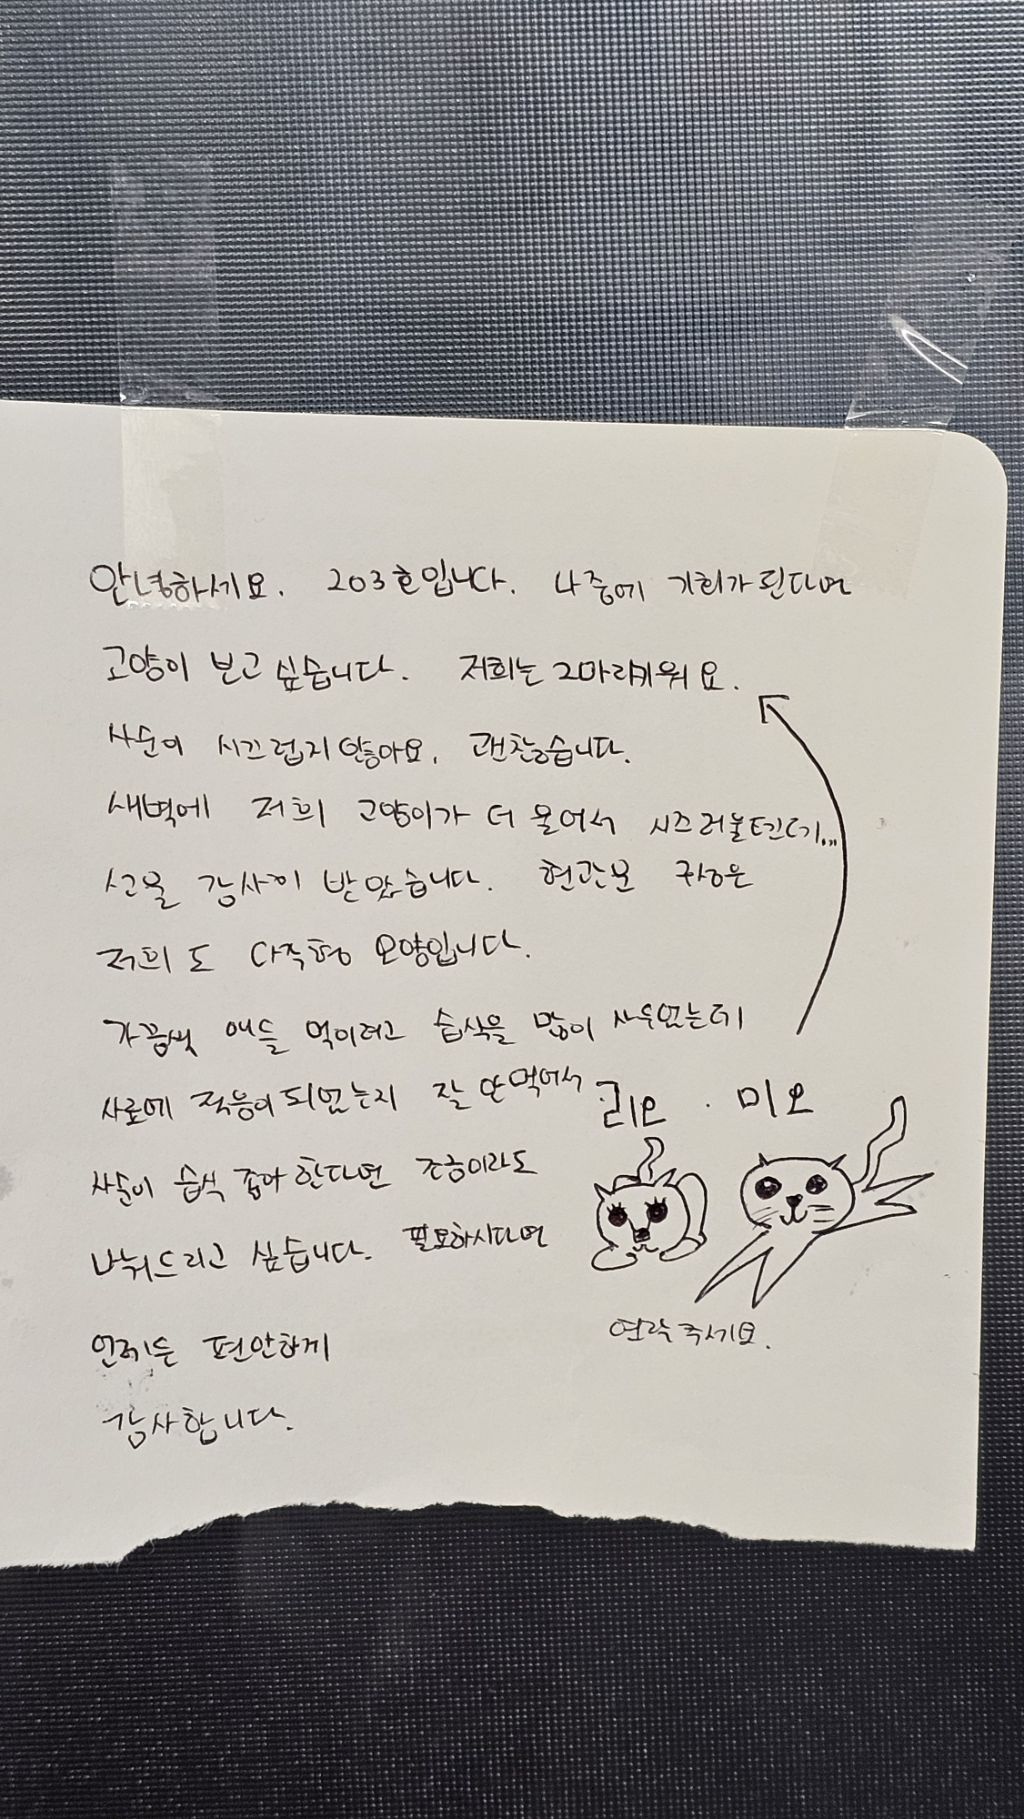 안녕하세요. 203호입니다. 나중에 기회가 된다면
고양이 보고 싶습니다. 저희는 2마리키워요.
사순이 시끄럽지 않아요. 괜찮습니다.
새벽에 저희 고양이가 더 울어서 시끄러울텐데...
선물 감사히 받았습니다. 현관문 귀중은
저희도 다각형 모양입니다.
가끔씩 애들 먹이려고 습식을 많이 사두었는데
사료에 적응이 되었는지 잘 안먹어서
사순이 습식 좋아한다면 조금이라도
나눠드리고 싶습니다. 필요하시다면
언제든 편안하게 연락주세요.
감사합니다.
리오 . 미오